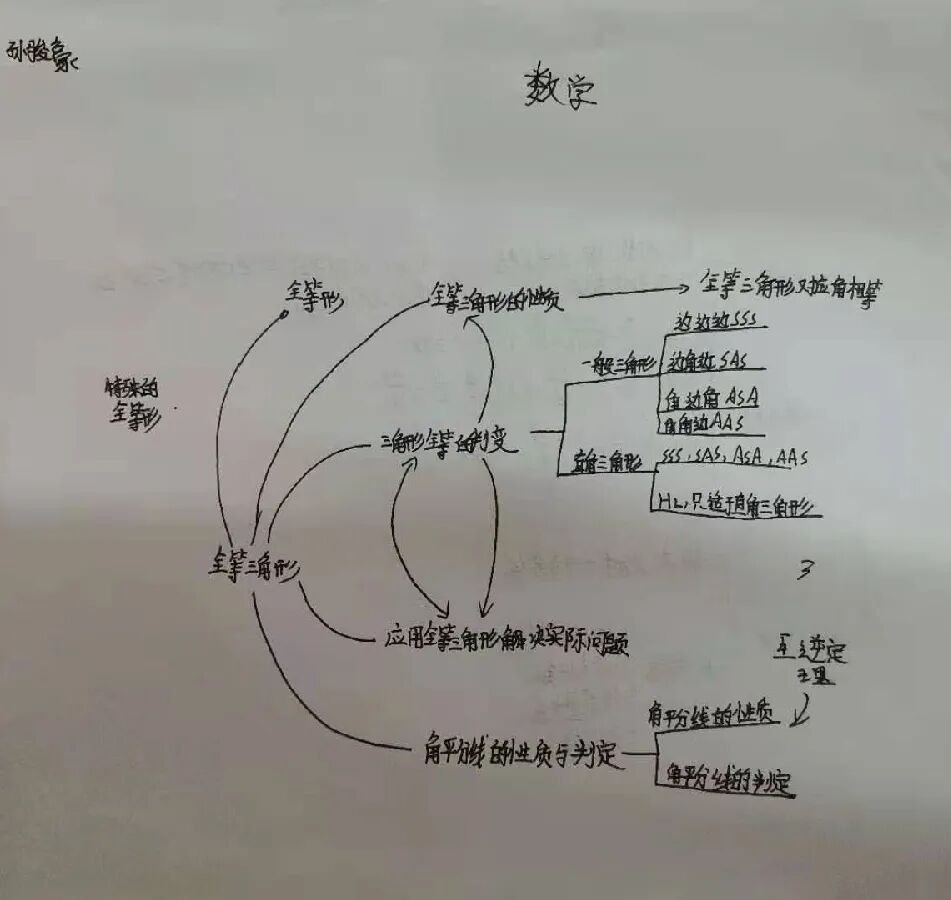 孙骏豪
数学
全等形
全等三角形的性质
全等三角形对应角相等
边边边SSS
一般三角形
边角边SAS
特殊的
全等形
角边角ASA
角角边AAS
三角形全等的判变
直角三角形
SSS,SAS,ASA,AAS
HL,只适于直角三角形
全等三角形
3
应用全等三角形解决实际问题
互逆定
理
角平分线的性质
角平分线的性质与判定
角平分线的判定